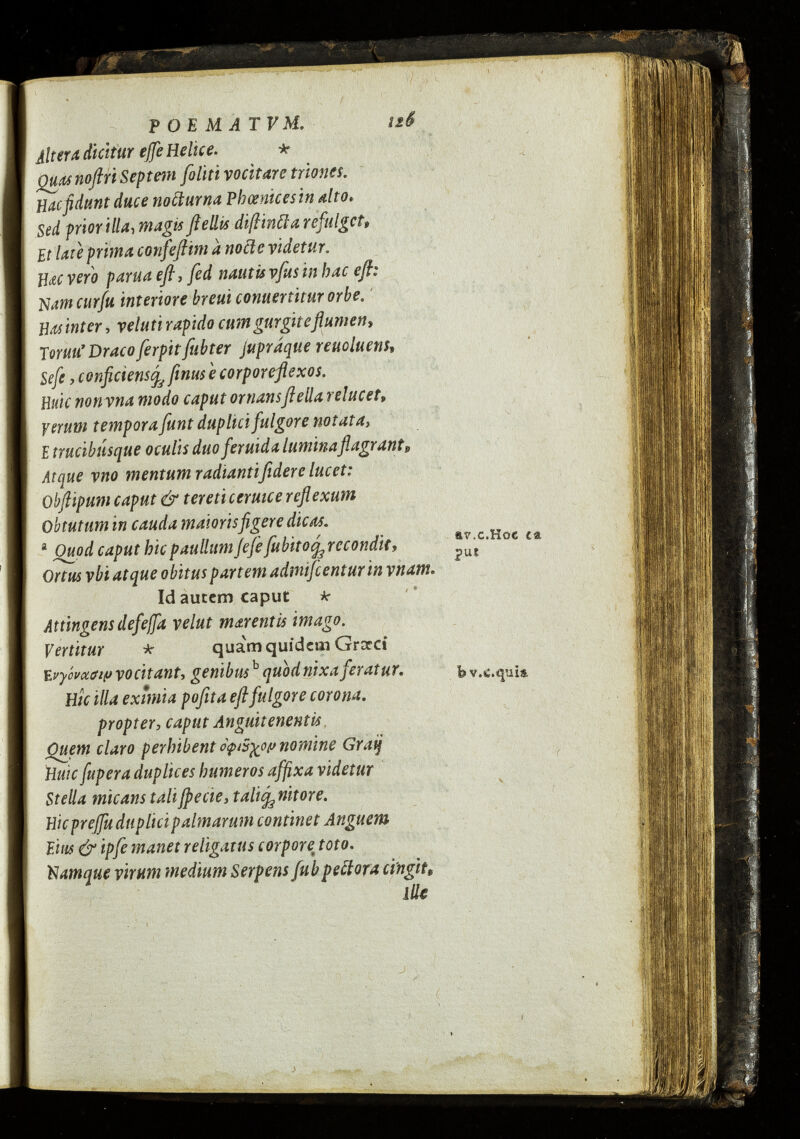 POEMATVM. 126
Altera dicitur eſſe Helice. *
Quas noſtri Septem ſoliti vocitare triones.
Hac fidunt duce nocturna Phœnices in alto.
Sed prior illa, magis ſtellis diſtincta refulget,
Et late prima confeſtim à nocte videtur.
Hæc verò parua eſt, ſed nautis vſus in hac eſt:
Nam curſu interiore breui conuertitur orbe.
Has inter, veluti rapido cum gurgite flumen,
Toruu' Draco ſerpit ſubter ſupráque reuoluens,
Seſe, conficiensq́; ſinus è corpore flexos.
Huic non vna modo caput ornans ſtella relucet,
Verum tempora ſunt duplici fulgore notata,
E trucibúsque oculis duo feruida lumina flagrant,
Atque vno mentum radianti ſidere lucet:
Obſtipum caput & tereti ceruice reflexum
Obtutum in cauda maioris figere dicas.
a Quod caput hic paullum ſeſe ſubitoq́; recondit,
av.c.Hoc ca
put
Ortus vbi atque obitus partem admiſcentur in vnam.
Id autem caput *
Attingens defeſſa velut mærentis imago.
Vertitur * quàm quidem Græci
Ἐνγόνασιν vocitant, genibus b quòd nixa feratur.
b v.c.quia
Hîc illa eximia poſita eſt fulgore corona.
propter, caput Anguitenentis,
Quem claro perhibent ὀφιοῦχον nomine Graij
Huic ſupera duplices humeros affixa videtur
Stella micans tali ſpecie, taliq́; nitore.
Hic preſſu duplici palmarum continet Anguem
Eius & ipſe manet religatus corpore toto.
Namque virum medium Serpens ſub pectora cingit,
Ille